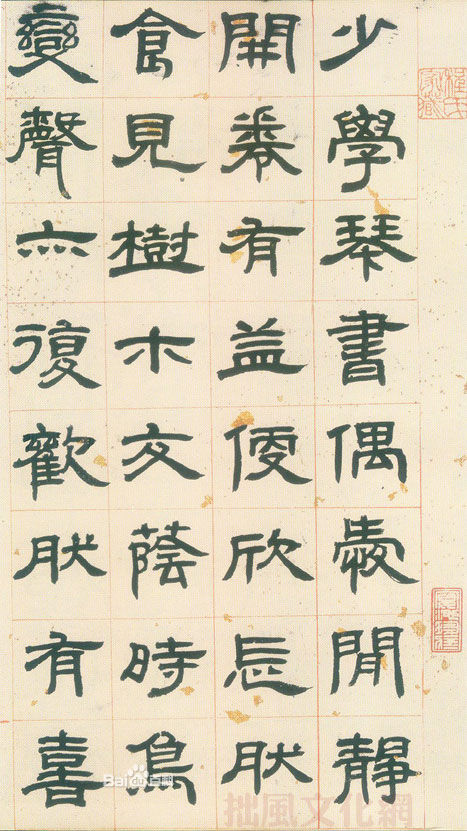 少學琴書偶愛閒靜
開卷有益便欣忘肰
食見樹木交蔭時鳥
變聲亦復歡肰有喜
Baidu百科
拙風文化網